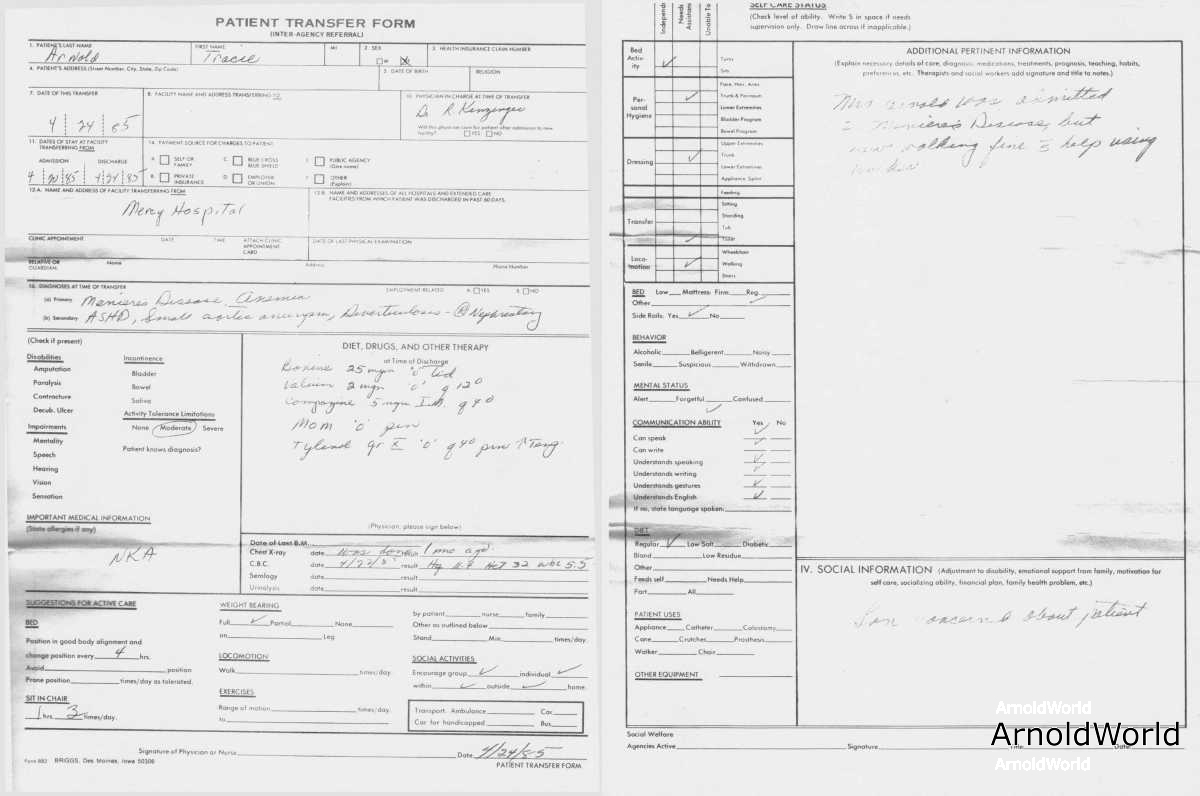 PATIENT TRANSFER FORM
(INTER-AGENCY REFERRAL)
1. PATIENT'S LAST NAME FIRST NAME MI 2. SEX 3. HEALTH INSURANCE CLAIM NUMBER
Arnold Tracie
4. PATIENT'S ADDRESS (Street Number, City, State, Zip Code) 5. DATE OF BIRTH RELIGION
7. DATE OF THIS TRANSFER 8. FACILITY NAME AND ADDRESS TRANSFERRING TO 10. PHYSICIAN IN CHARGE AT TIME OF TRANSFER
4 24 85 Dr R
Will this physician care for patient after admission to new facility? YES NO
11. DATES OF STAY AT FACILITY TRANSFERRING FROM 14. PAYMENT SOURCE FOR CHARGES TO PATIENT
ADMISSION DISCHARGE A. SELF OR FAMILY C. BLUE CROSS BLUE SHIELD PUBLIC AGENCY (Give name)
4 20 85 4 24 85 B. PRIVATE INSURANCE D. EMPLOYER OR UNION OTHER (Explain)
12-A. NAME AND ADDRESS OF FACILITY TRANSFERRING FROM 12-B. NAME AND ADDRESSES OF ALL HOSPITALS AND EXTENDED CARE FACILITIES FROM WHICH PATIENT WAS DISCHARGED IN PAST 60 DAYS.
Mercy Hospital
CLINIC APPOINTMENT DATE TIME ATTACH CLINIC APPOINTMENT CARD DATE OF LAST PHYSICAL EXAMINATION
RELATIVE OR GUARDIAN: Name Address Phone Number
DIAGNOSES AT TIME OF TRANSFER EMPLOYMENT RELATED A. YES B. NO
(a) Primary Menieres Disease, Anemia
(b) Secondary ASHD, Small aortic aneurysm, Diverticulosis - R Nephrectomy
(Check if present)
Disabilities
Amputation
Paralysis
Contracture
Decub. Ulcer
Impairments
Mentality
Speech
Hearing
Vision
Sensation
Incontinence
Bladder
Bowel
Saliva
Activity Tolerance Limitations
None Moderate Severe
Patient knows diagnosis?
IMPORTANT MEDICAL INFORMATION
(State allergies if any)
NKA
DIET, DRUGS, AND OTHER THERAPY
at Time of Discharge
Bonine 25 mgm 'o' tid
Valium 2 mgm 'o' q 12°
Compazine 5 mgm I.M. q 4°
MOM 'o' prn
Tylenol gr X 'o' q 4° prn
(Physician, please sign below)
Date of Last B.M.
Chest X-ray date Was done 1 mo ago
C.B.C. date 4/22/85 result Hg 11.9 Hct 32 WBC 5.5
Serology date result
Urinalysis date result
SUGGESTIONS FOR ACTIVE CARE
BED
Position in good body alignment and
change position every 4 hrs.
Avoid position
Prone position times/day as tolerated.
SIT IN CHAIR
1 hrs. 3 times/day.
WEIGHT BEARING
Full Partial None
on Leg
LOCOMOTION
Walk times/day.
EXERCISES
Range of motion times/day.
to
by patient nurse family
Other as outlined below
Stand Min. times/day.
SOCIAL ACTIVITIES
Encourage group individual
within outside home.
Transport: Ambulance Car
Car for handicapped Bus
Signature of Physician or Nurse Date 4/24/85
Form 882 BRIGGS, Des Moines, Iowa 50306 PATIENT TRANSFER FORM
SELF CARE STATUS
(Check level of ability. Write S in space if needs
supervision only. Draw line across if inapplicable.)
Independent Needs Assistance Unable To
Bed Activity
Turns
Sits
Personal Hygiene
Face, Hair, Arms
Trunk & Perineum
Lower Extremities
Bladder Program
Bowel Program
Dressing
Upper Extremities
Trunk
Lower Extremities
Appliance, Splint
Feeding
Transfer
Sitting
Standing
Tub
Toilet
Locomotion
Wheelchair
Walking
Stairs
BED Low Mattress: Firm Reg.
Other
Side Rails: Yes No
BEHAVIOR
Alcoholic Belligerent Noisy
Senile Suspicious Withdrawn
MENTAL STATUS
Alert Forgetful Confused
COMMUNICATION ABILITY Yes No
Can speak
Can write
Understands speaking
Understands writing
Understands gestures
Understands English
If no, state language spoken:
DIET
Regular Low Salt Diabetic
Bland Low Residue
Other
Feeds self Needs Help
Part All
PATIENT USES
Appliance Catheter Colostomy
Cane Crutches Prosthesis
Walker Chair
OTHER EQUIPMENT
ADDITIONAL PERTINENT INFORMATION
(Explain necessary details of care, diagnosis, medications, treatments, prognosis, teaching, habits,
preferences, etc. Therapists and social workers add signature and title to notes.)
Mrs Arnold was admitted
c Meniere's Disease, but
now walking fine c help using
IV. SOCIAL INFORMATION (Adjustment to disability, emotional support from family, motivation for
self care, socializing ability, financial plan, family health problem, etc.)
Son concerned about patient
Social Welfare
Agencies Active Signature Title Date
ArnoldWorld
ArnoldWorld
ArnoldWorld